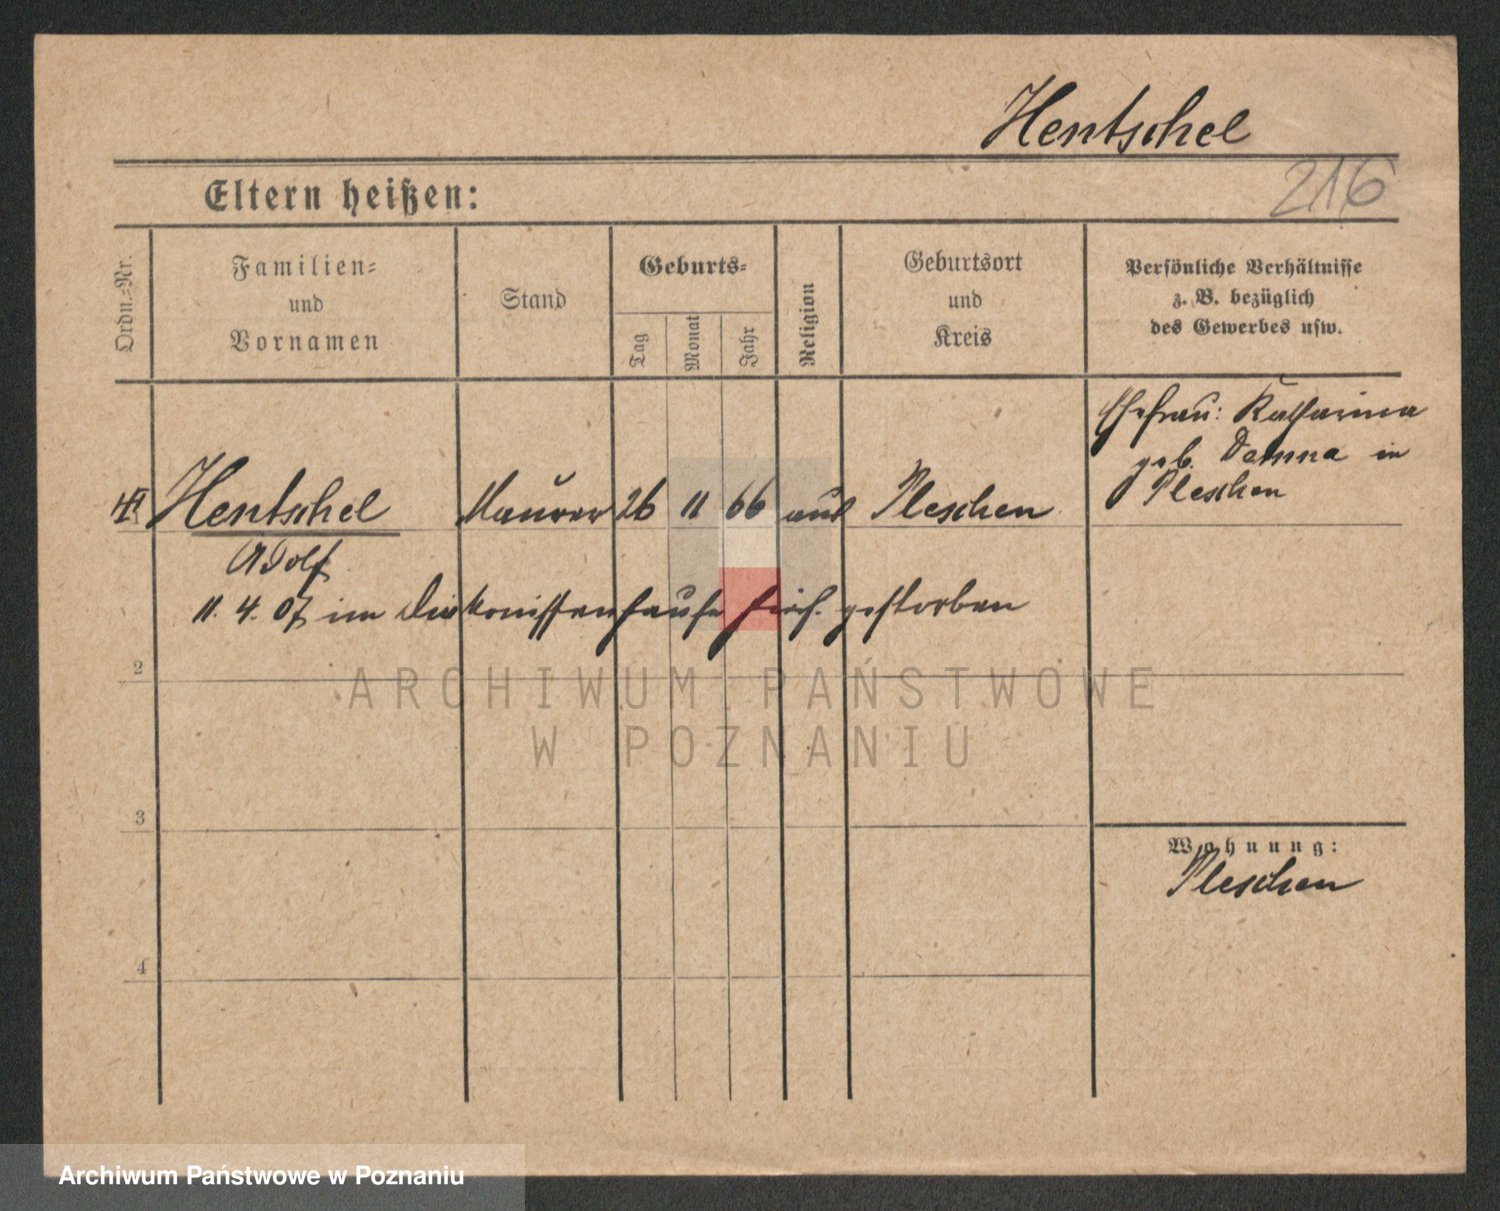 Hentschel
216
Eltern heißen:
Ordn.-Nr.
Familien-
und
Vornamen
Stand
Geburts-
Tag
Monat
Jahr
Religion
Geburtsort
und
Kreis
Persönliche Verhältnisse
z. B. bezüglich
des Gewerbes usw.
Ehefrau: Katharina
geb. Damna in
Pleschen
Hentschel Maurer 26 11 66 Pleschen
Adolf
11. 4. 07 im Diakonissenhause hier gestorben
2
3
4
Wohnung:
Pleschen
ARCHIWUM PAŃSTWOWE
W POZNANIU
Archiwum Państwowe w Poznaniu